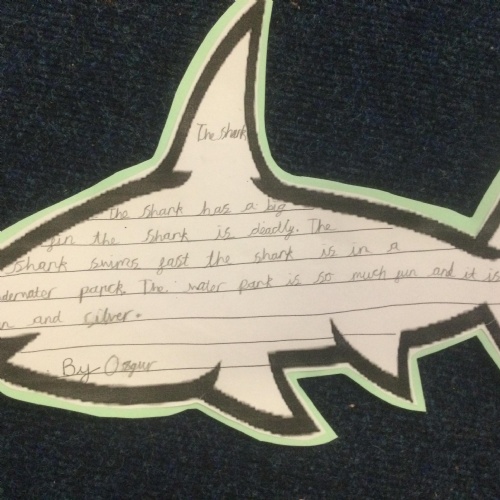 The shark
The shark has a big
fin the shark is deadly. The
shark swims fast the shark is in a
parck. The water park is so much fun and it is
and silver.
By Ozgur